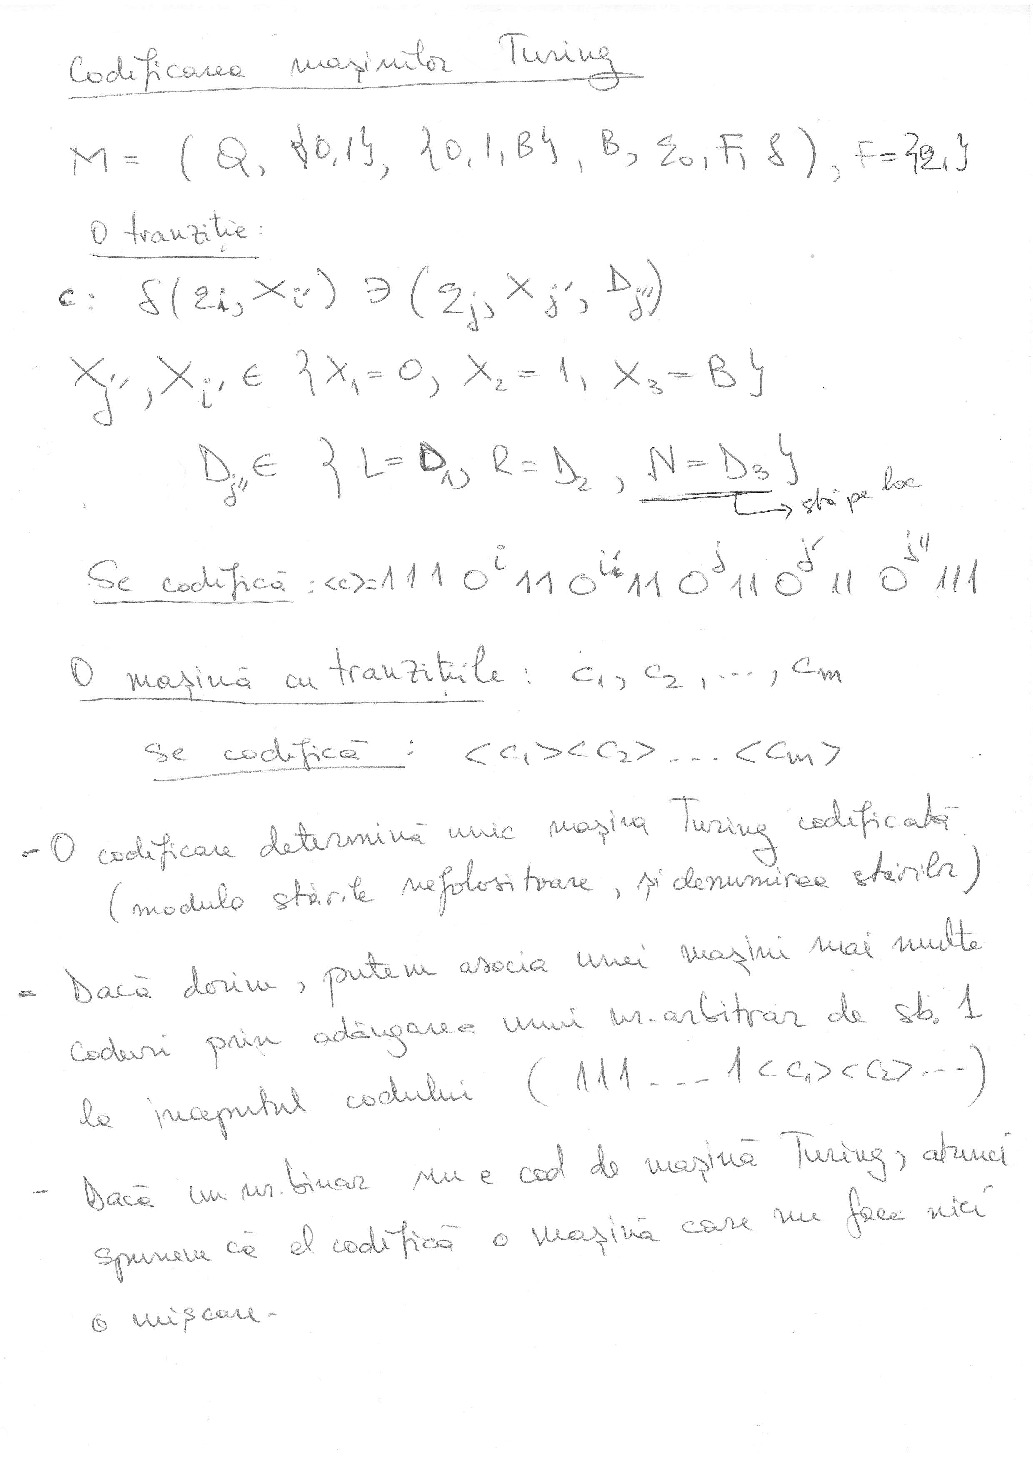 Codificarea mașinilor Turing
M = ( Q, {0,1}, {0,1,B}, B, q₀, F, δ ), F={q₁}
O tranziție:
c: δ(qᵢ, Xᵢ′) ∋ (qⱼ, Xⱼ′, Dⱼ″)
Xⱼ′, Xᵢ′ ∈ {X₁=0, X₂=1, X₃=B}
Dⱼ″ ∈ {L=D₁, R=D₂, N=D₃}
↳ stă pe loc
Se codifică: <c>=111 0ⁱ 11 0ⁱ′ 11 0ʲ 11 0ʲ′ 11 0ʲ″ 111
O mașină cu tranzițiile: c₁, c₂, ..., cₘ
se codifică: <c₁><c₂>...<cₘ>
- O codificare determină unic mașina Turing codificată
(modulo stările nefolositoare, și denumirea stărilor)
- Dacă dorim, putem asocia unei mașini mai multe
coduri prin adăugarea unui nr. arbitrar de sb. 1
la începutul codului ( 111 --- 1<c₁><c₂>...)
- Dacă un nr. binar nu e cod de mașină Turing, atunci
spunem că el codifică o mașină care nu face nici
o mișcare.